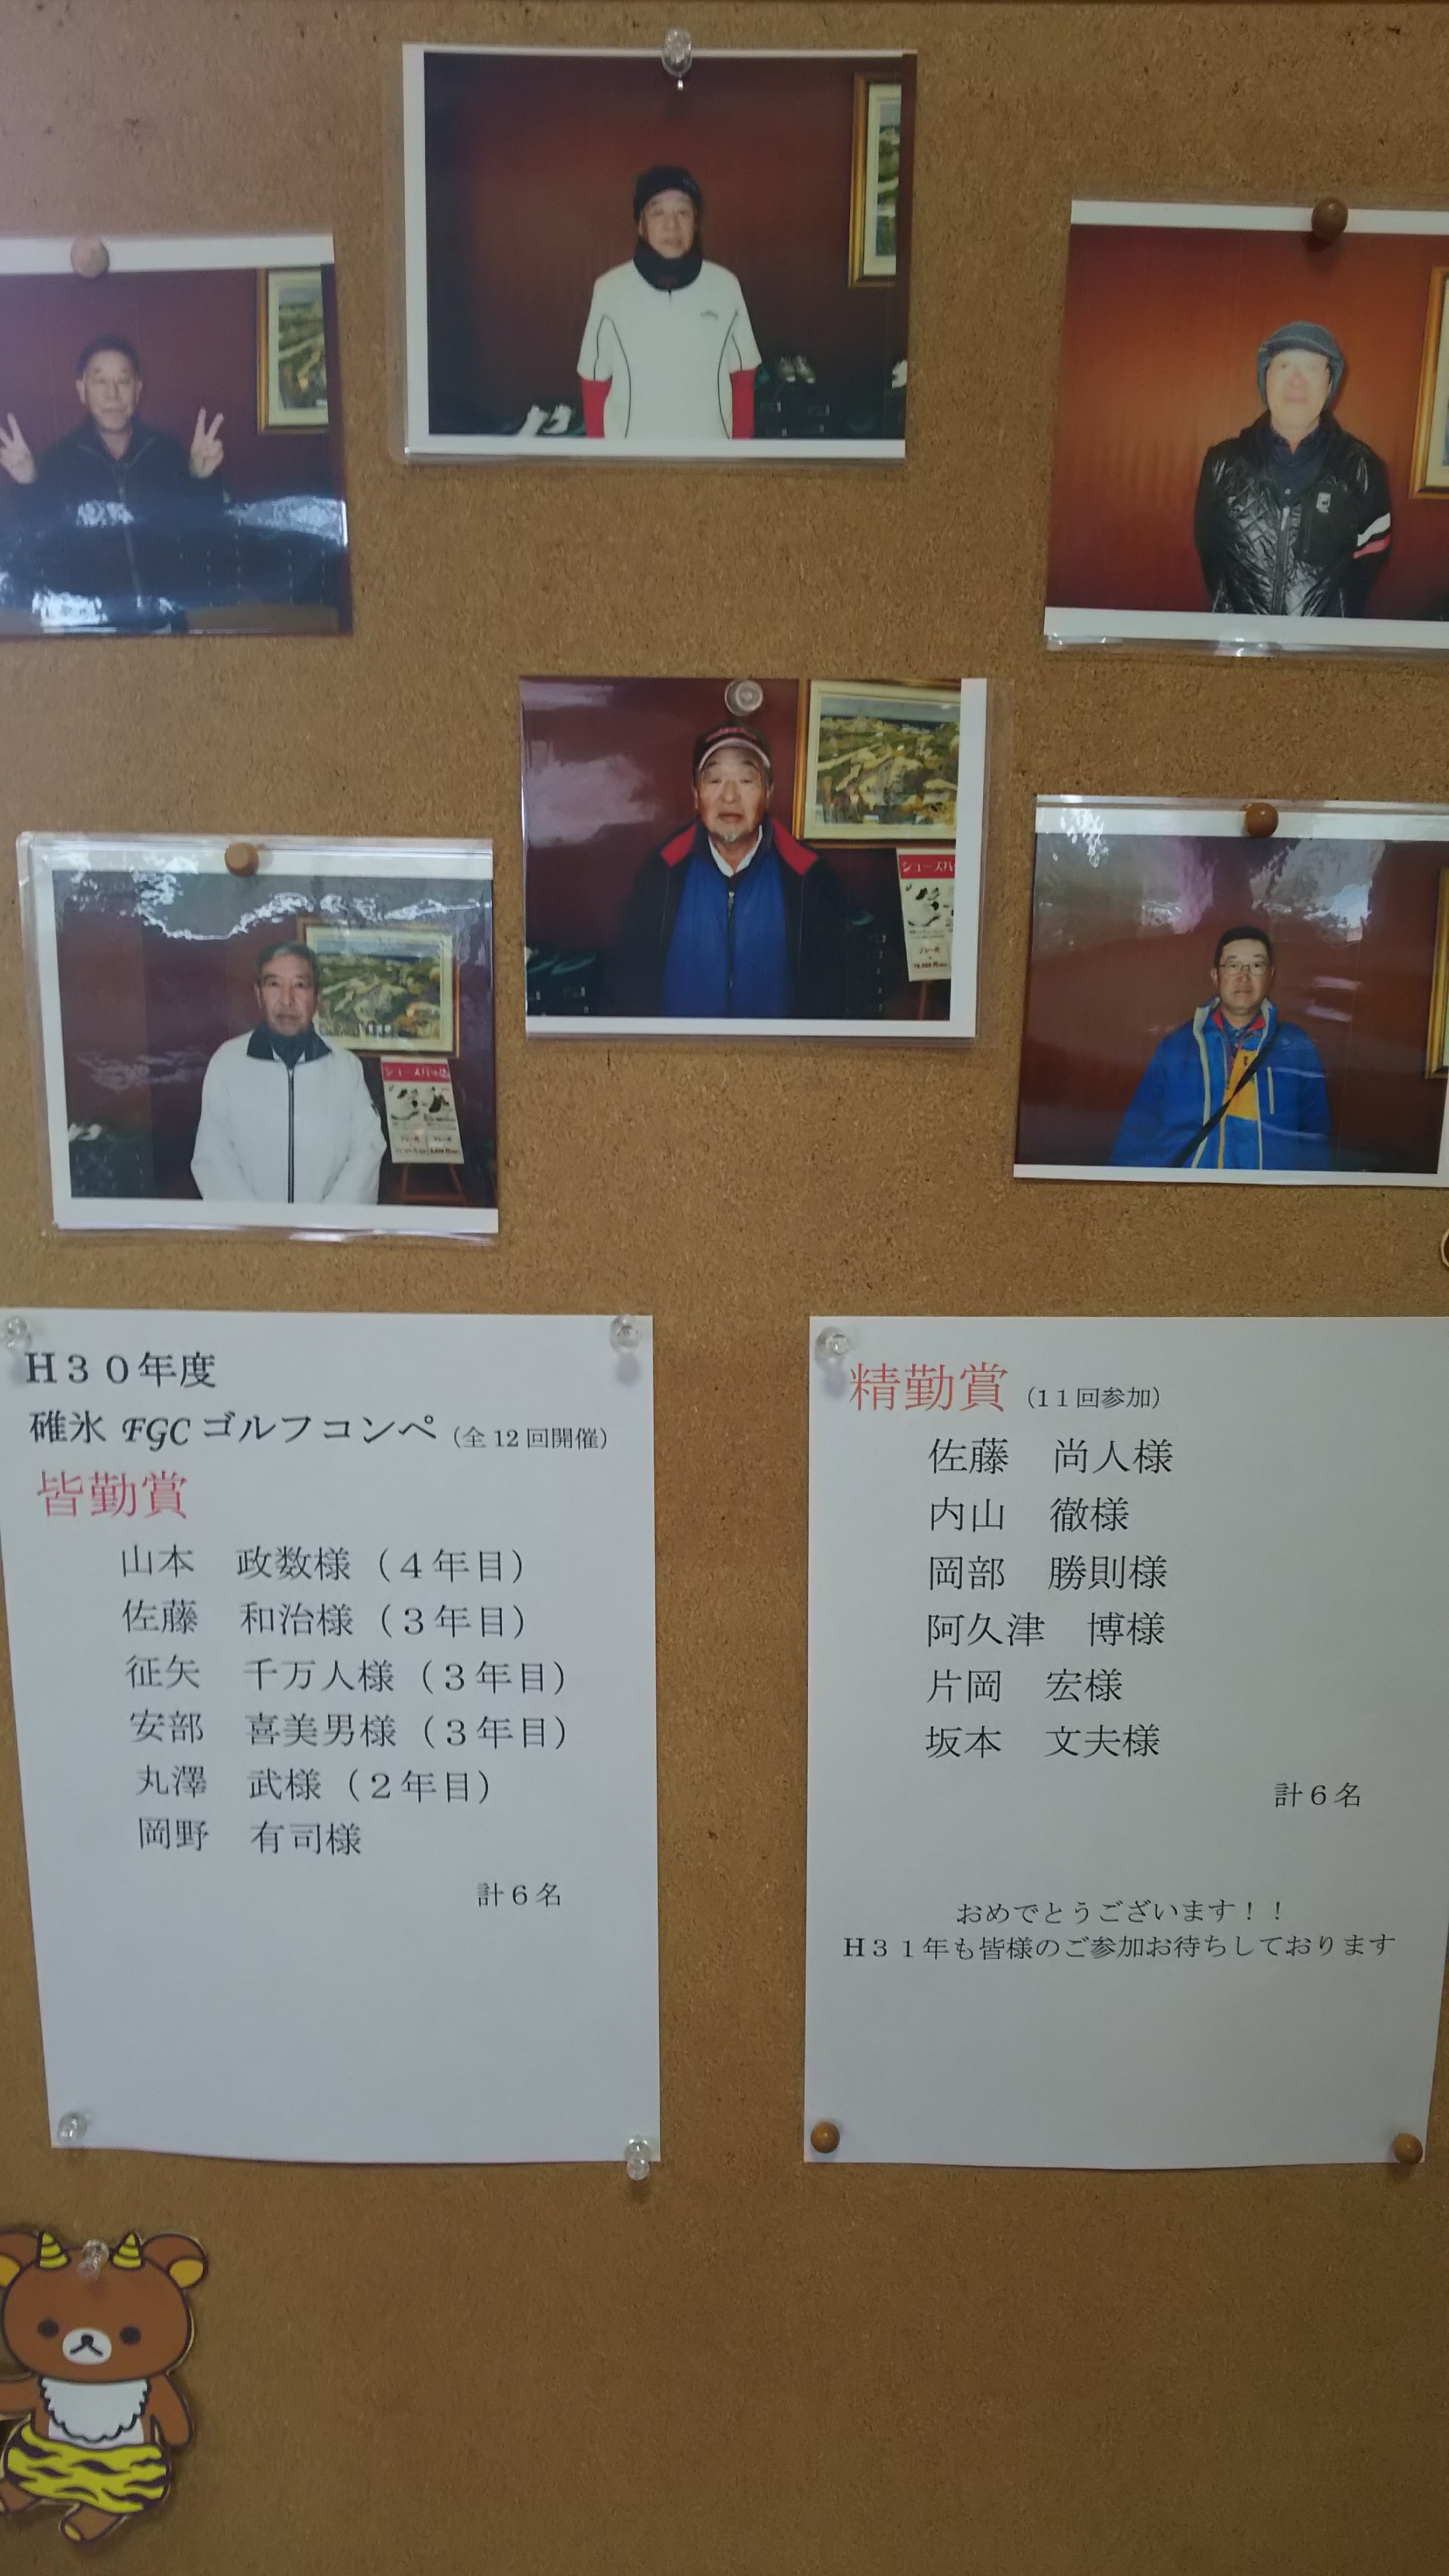 シューズバ
シューズバ
H３０年度
碓氷 FGC ゴルフコンペ（全 12 回開催）
皆勤賞
山本　政数様（４年目）
佐藤　和治様（３年目）
征矢　千万人様（３年目）
安部　喜美男様（３年目）
丸澤　武様（２年目）
岡野　有司様
計６名
精勤賞（１１回参加）
佐藤　尚人様
内山　徹様
岡部　勝則様
阿久津　博様
片岡　宏様
坂本　文夫様
計６名
おめでとうございます！！
H３１年も皆様のご参加お待ちしております